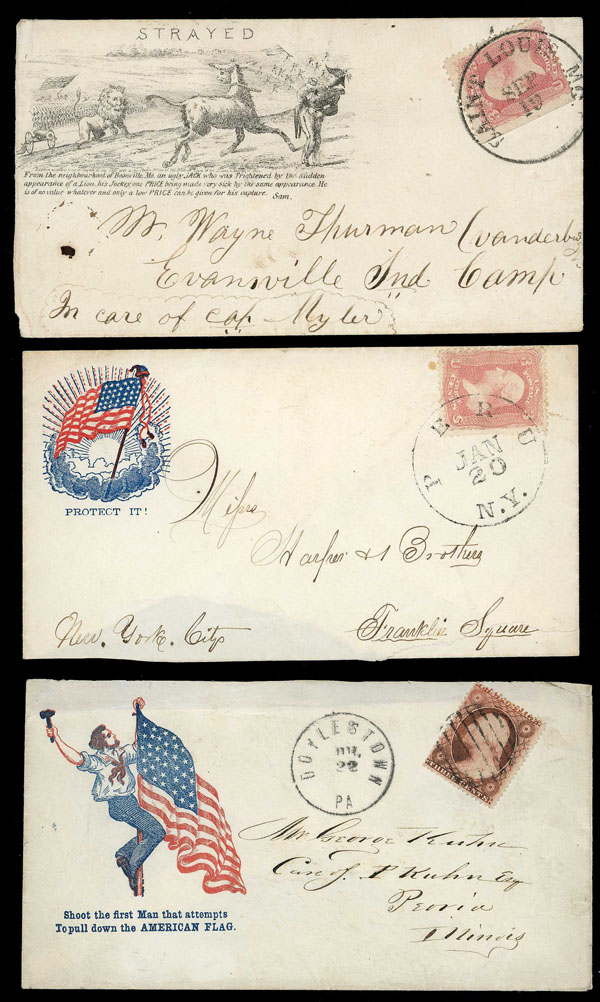 STRAYED
SAINT LOUIS MO.
SEP
19
From the neighbourhood of Boonville, Mo. an ugly JACK who was frightened by the sudden
appearance of a Lion, his Jockey, one PRICE being made very sick by the same appearance. He
is of no value whatever and only a low PRICE can be given for his capture.
Sam,
Mr. Wayne Thurman (vanderbu
Evansville Ind Camp
In care of cap. Myler
PROTECT IT!
PERU
JAN
20
N.Y.
Messrs
Harper & Brothers
New. York. City
Franklin Square
DOYLESTOWN
JUL
22
PA
THREE CENTS
Shoot the first Man that attempts
To pull down the AMERICAN FLAG.
Mr. George Kuhn
Care of. P Kuhn Esq
Peoria
Illinois